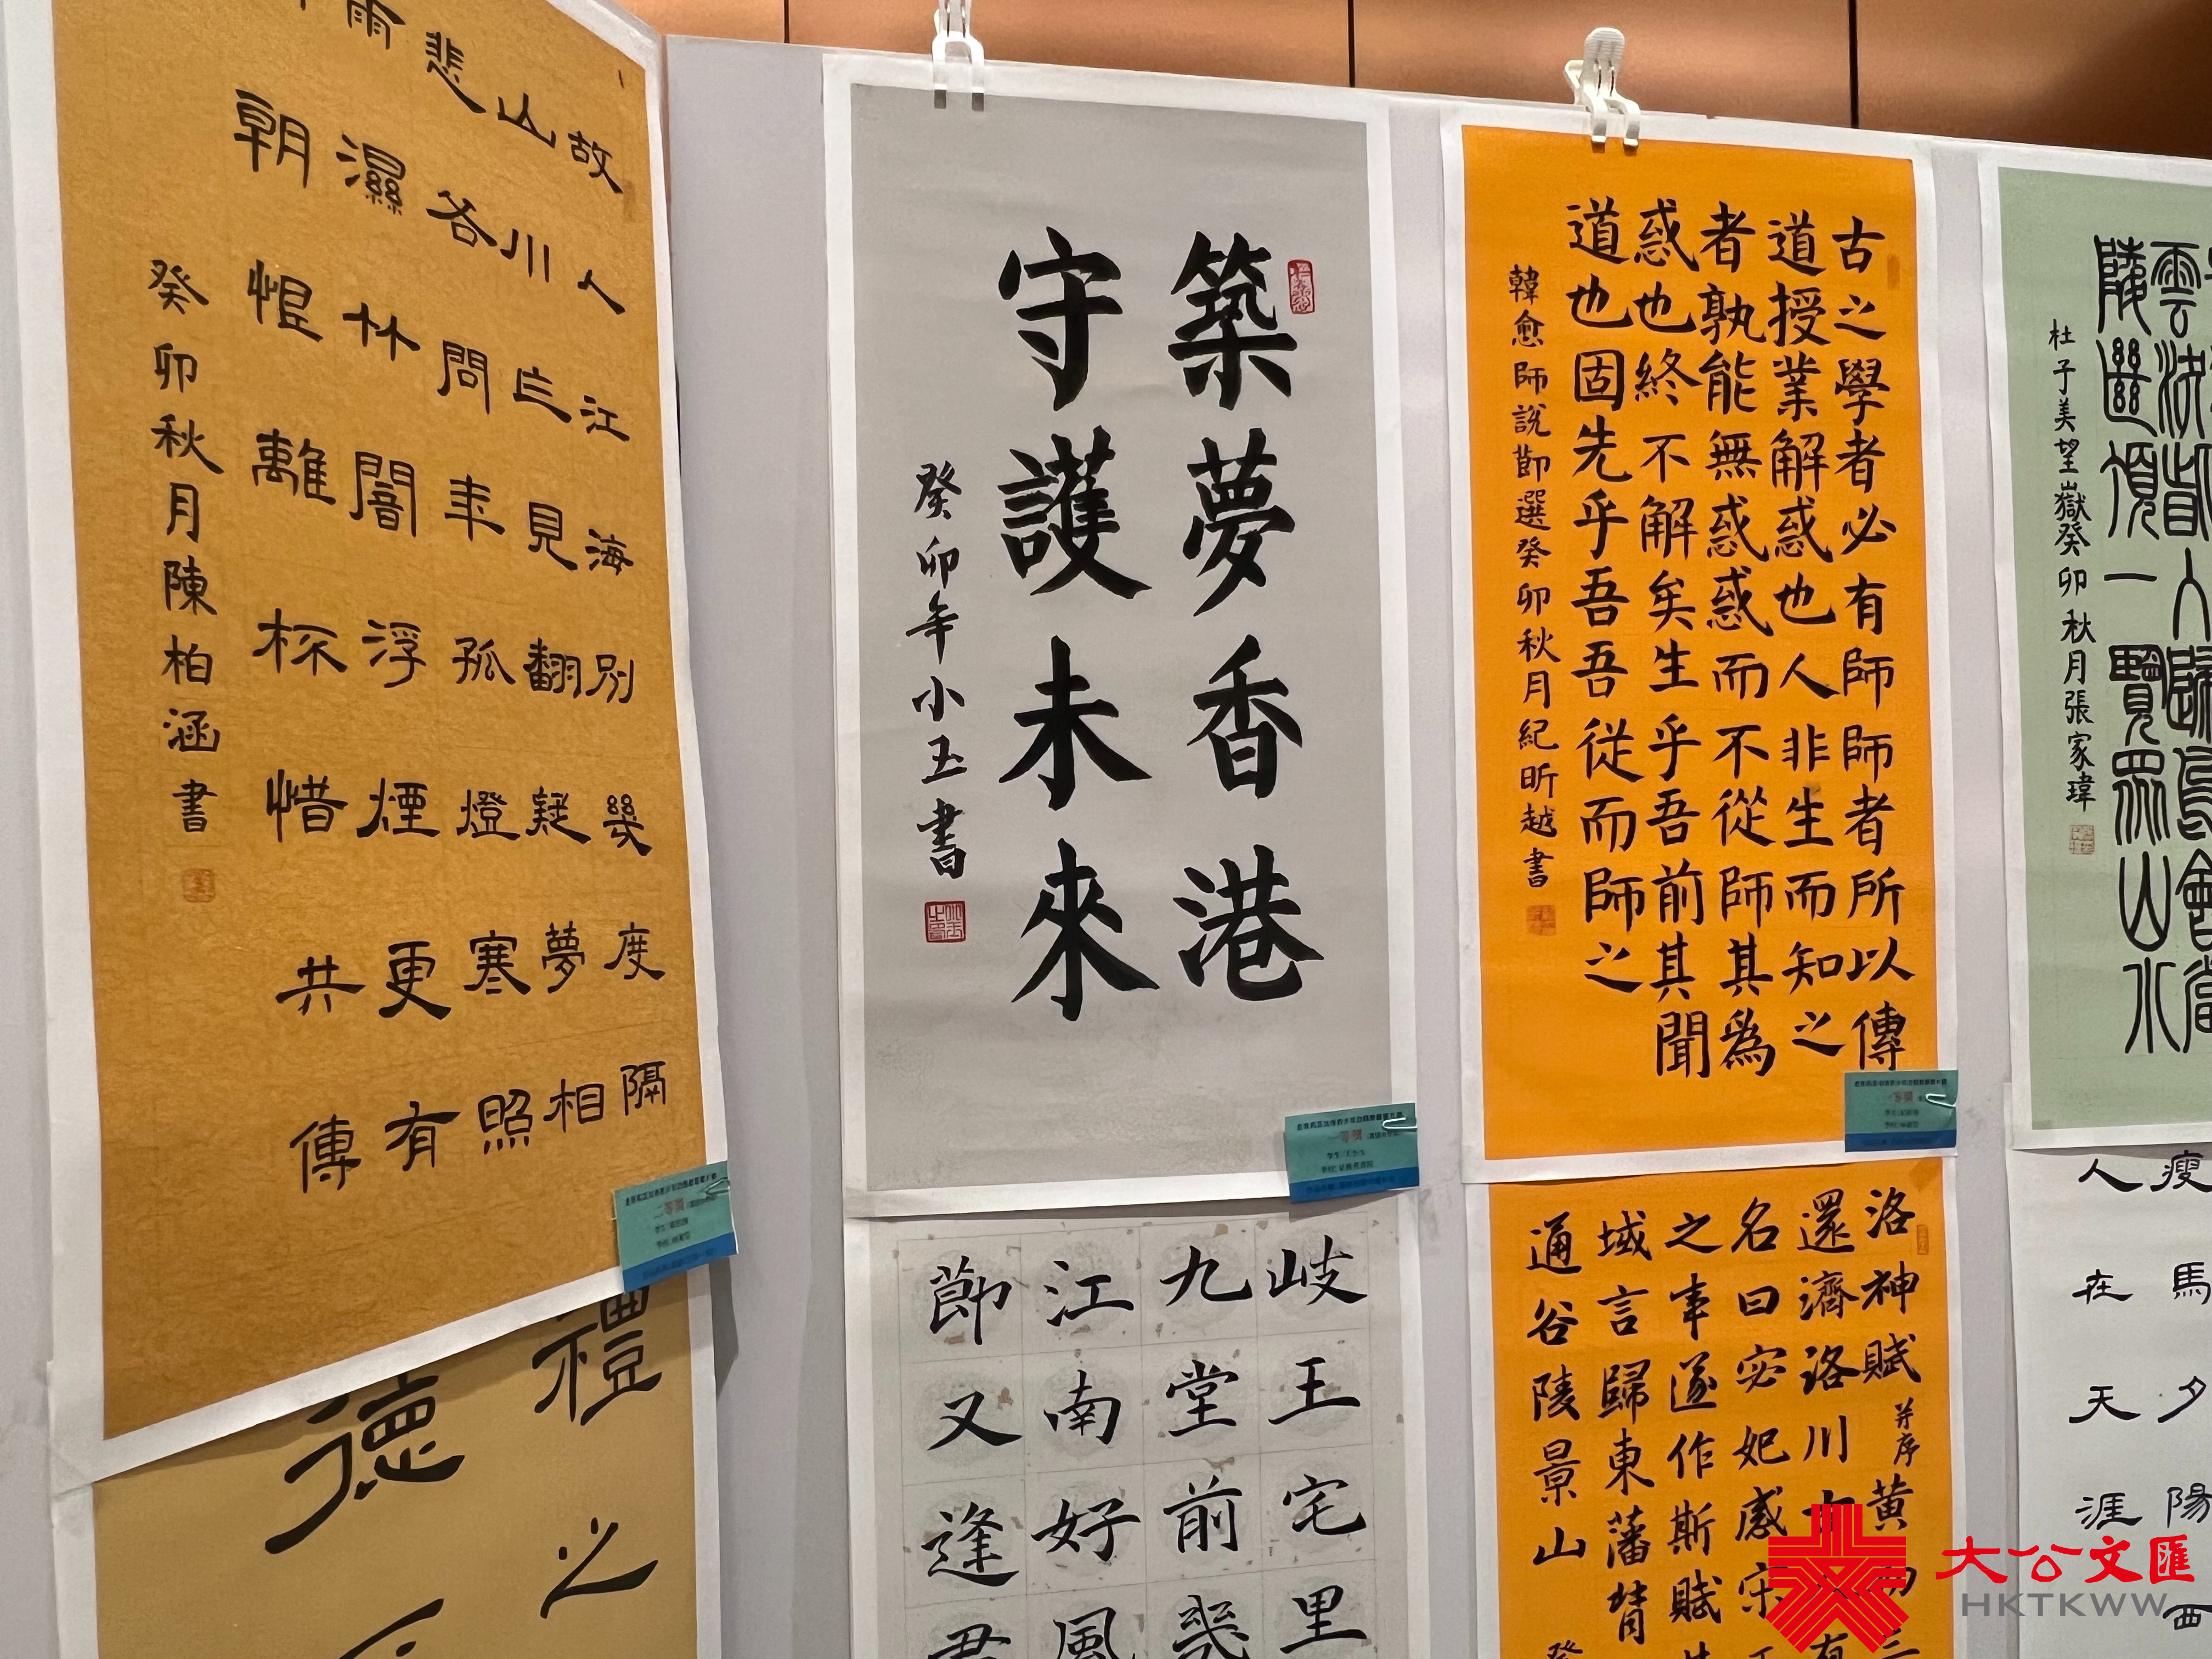 故人江海別幾度隔
山川乍見翻疑夢相
悲各問年孤燈寒照
雨濕竹林闇浮煙更有
朝惶離杯惜共傳
癸卯秋月陳柏涵書
禮之
德
築夢香港
守護未來
癸卯年小玉書
岐王宅里
九堂前幾
江南好風
節又逢君
古之學者必有師師者所以傳
道授業解惑也人非生而知之
者孰能無惑惑而不從師其為
惑也終不解矣生乎吾前其聞
道也固先乎吾吾從而師之
韓愈師說節選癸卯秋月紀昕越書
洛神賦并序黃初三
還濟洛川古人有
名曰宓妃感宋玉
之事遂作斯賦
域言歸東藩背
通谷陵景山
雲決眥入歸鳥會當
陵幽頂一覽眾山小
杜子美望嶽癸卯秋月張家瑋
瘦馬夕陽西
人在天涯
大公文匯
HKTKWW